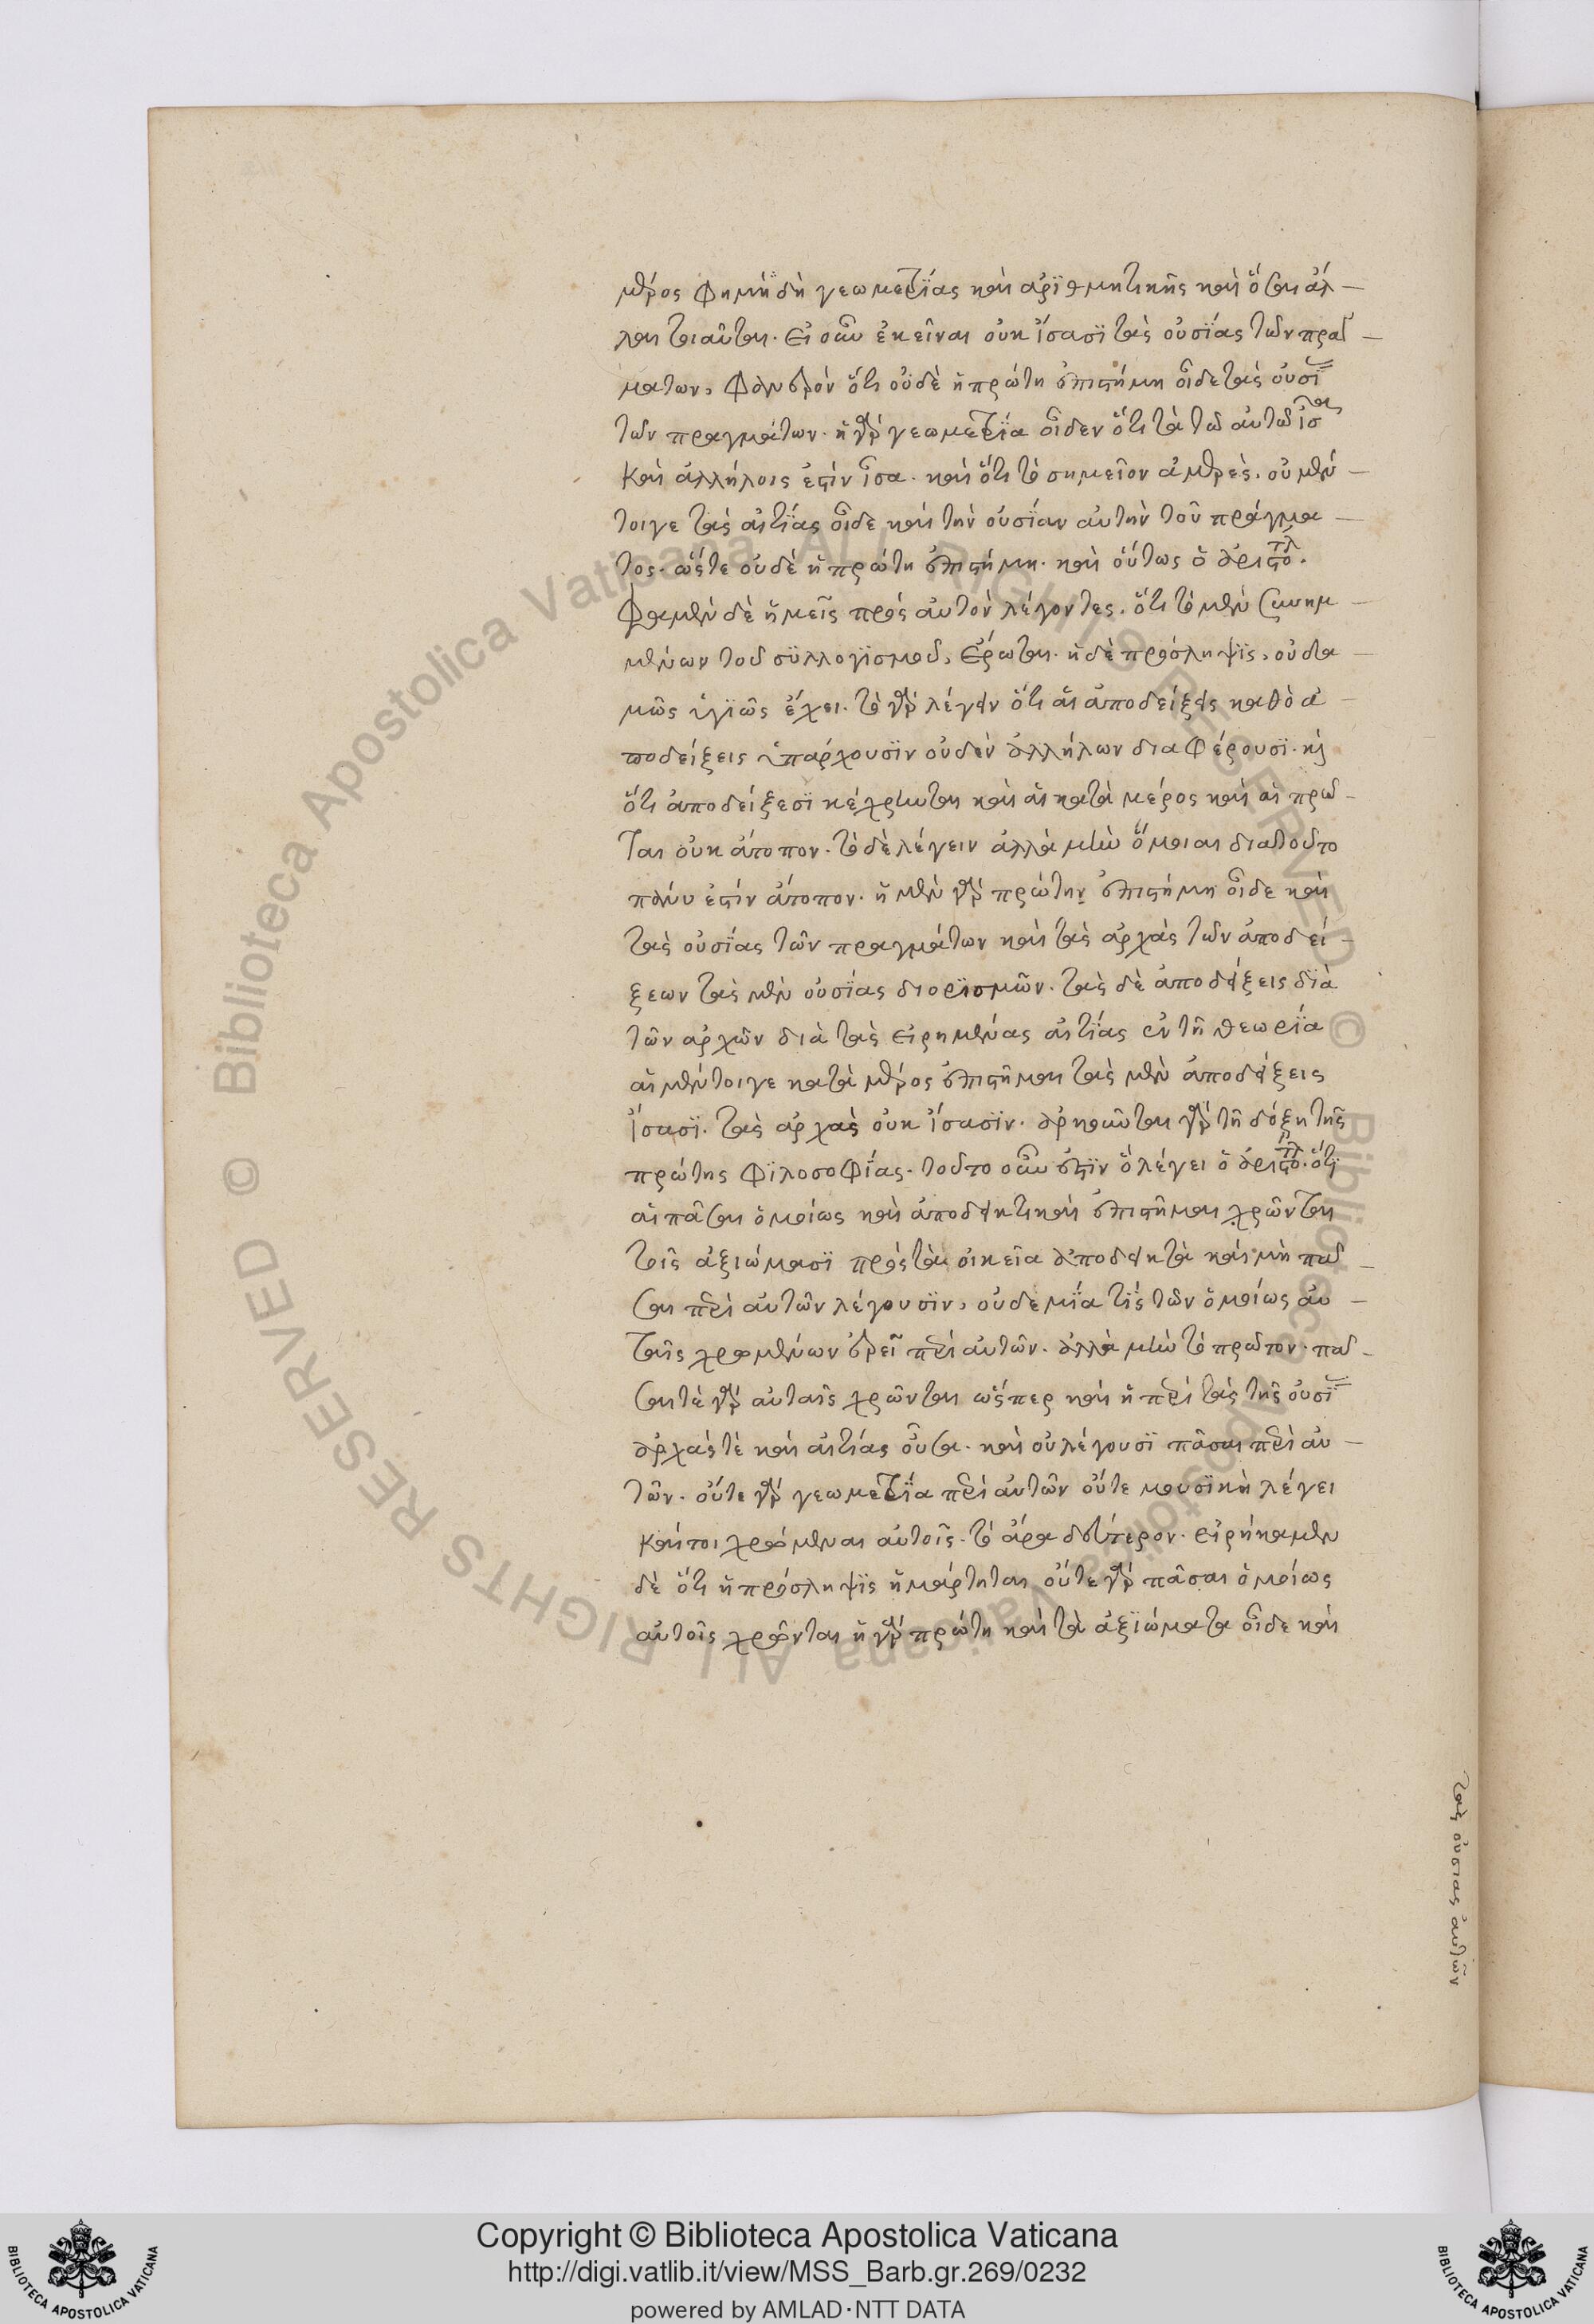 μέρος φημὴ δὴ γεωμετρϊας καὶ ἀρϊθμητικῆς καὶ ὅσαι ἄλ-
λαι τοιαῦται. εἰ οὖν ἐκεῖναι οὐκ ἴσασϊ τὰς οὐσΐας τῶν πραγ-
μάτων, φανερὸν ὅτι οὐδὲ ἡ πρώτη ἐπιστήμη οἶδε τὰς οὐσΐας
τῶν πραγμάτων. ἡ γὰρ γεωμετρΐα οἶδεν ὅτι τὰ τῶ αὐτῶ ἴσα
καὶ ἀλλήλοις ἐστὶν ἴσα. καὶ ὅτι τὸ σημεῖον ἀμερές. οὐ μέν-
τοιγε τὰς αἰτΐας οἶδε καὶ τὴν οὐσίαν αὐτὴν τοῦ πράγμα-
τος. ὥστε οὐδὲ ἡ πρώτη ἐπιστήμη. καὶ οὕτως ὁ ἀριστοτλ.
Φαμὲν δὲ ἡμεῖς πρὸς αὐτὸν λέγοντες. ὅτι τὸ μὲν συνημ-
μένων τοῦ συλλογϊσμοῦ, ἔρωται. ἡ δὲ πρόσληψϊς, οὐδα-
μῶς ὑγϊῶς ἔχει. τὸ γὰρ λέγειν ὅτι αἱ ἀποδείξεις καθὸ ἀ-
ποδείξεις ὑπάρχουσϊν οὐδὲν ἀλλήλων διαφέρουσϊ. καὶ
ὅτι ἀποδείξεσϊ κέχρηνται καὶ αἱ κατὰ μέρος καὶ αἱ πρῶ-
ται οὐκ ἄτοπον. τὸ δὲ λέγειν ἀλλὰ μὴν ὅμοιαι διὰ τοῦτο
πάνυ ἐστὶν ἄτοπον. ἡ μὲν γὰρ πρώτην ἐπιστήμη οἶδε καὶ
τὰς οὐσΐας τῶν πραγμάτων καὶ τὰς ἀρχὰς τῶν ἀποδεί-
ξεων τὰς μὲν οὐσΐας διορϊσμῶν. τὰς δὲ ἀποδείξεις διὰ
τῶν ἀρχῶν διὰ τὰς εἰρημένας αἰτΐας ἐν τῆ θεωρΐα
αἱ μέντοιγε κατὰ μέρος ἐπιστῆμαι τὰς μὲν ἀποδείξεις
ἴσασϊ. τὰς ἀρχὰς οὐκ ἴσασϊν. ἀρκοῦνται γὰρ τῆ δόξη τῆς
πρώτης φϊλοσοφΐας. τοῦτο οὖν ἐστϊν ὃ λέγει ὁ ἀριστοτλ. ὅτϊ
αἱ πᾶσαι ὁμοίως καὶ ἀποδεικτικαὶ ἐπιστῆμαι χρῶνται
τοῖς ἀξιώμασϊ πρὸς τὰ οἰκεῖα ἀποδεικτὰ καὶ μὴ πᾶ-
σαι περὶ αὐτῶν λέγουσϊν, οὐδεμΐα τὶς τῶν ὁμοίως αὐ-
ταῖς χρωμένων ἐρεῖ περὶ αὐτῶν. ἀλλὰ μὴν τὸ πρῶτον. πᾶ-
σαι τὲ γὰρ αὐταῖς χρῶνται ὥσπερ καὶ ἡ περὶ τὰς τῆς οὐσΐας
ἀρχάς τὲ καὶ αἰτίας οὖσα. καὶ οὐ λέγουσϊ πᾶσαι περὶ αὐ-
τῶν. οὔτε γὰρ γεωμετρΐα περὶ αὐτῶν οὔτε μουσϊκὴ λέγει
καίτοι χρώμεναι αὐτοῖς. τὸ ἄρα δεύτερον. εἰρήκαμεν
δὲ ὅτι ἡ πρόσληψϊς ἡμάρτηται οὔτε γὰρ πᾶσαι ὁμοίως
αὐτοῖς χρῶνται ἡ γὰρ πρώτη καὶ τὰ ἀξϊώματα οἶδε καὶ
τὰς οὐσιας αὐτῶν
Copyright © Biblioteca Apostolica Vaticana
http://digi.vatlib.it/view/MSS_Barb.gr.269/0232
powered by AMLAD·NTT DATA
BIBLIOTECA APOSTOLICA VATICANA
BIBLIOTECA APOSTOLICA VATICANA
© Biblioteca Apostolica Vaticana ALL RIGHTS RESERVED
© Biblioteca Apostolica Vaticana ALL RIGHTS RESERVED